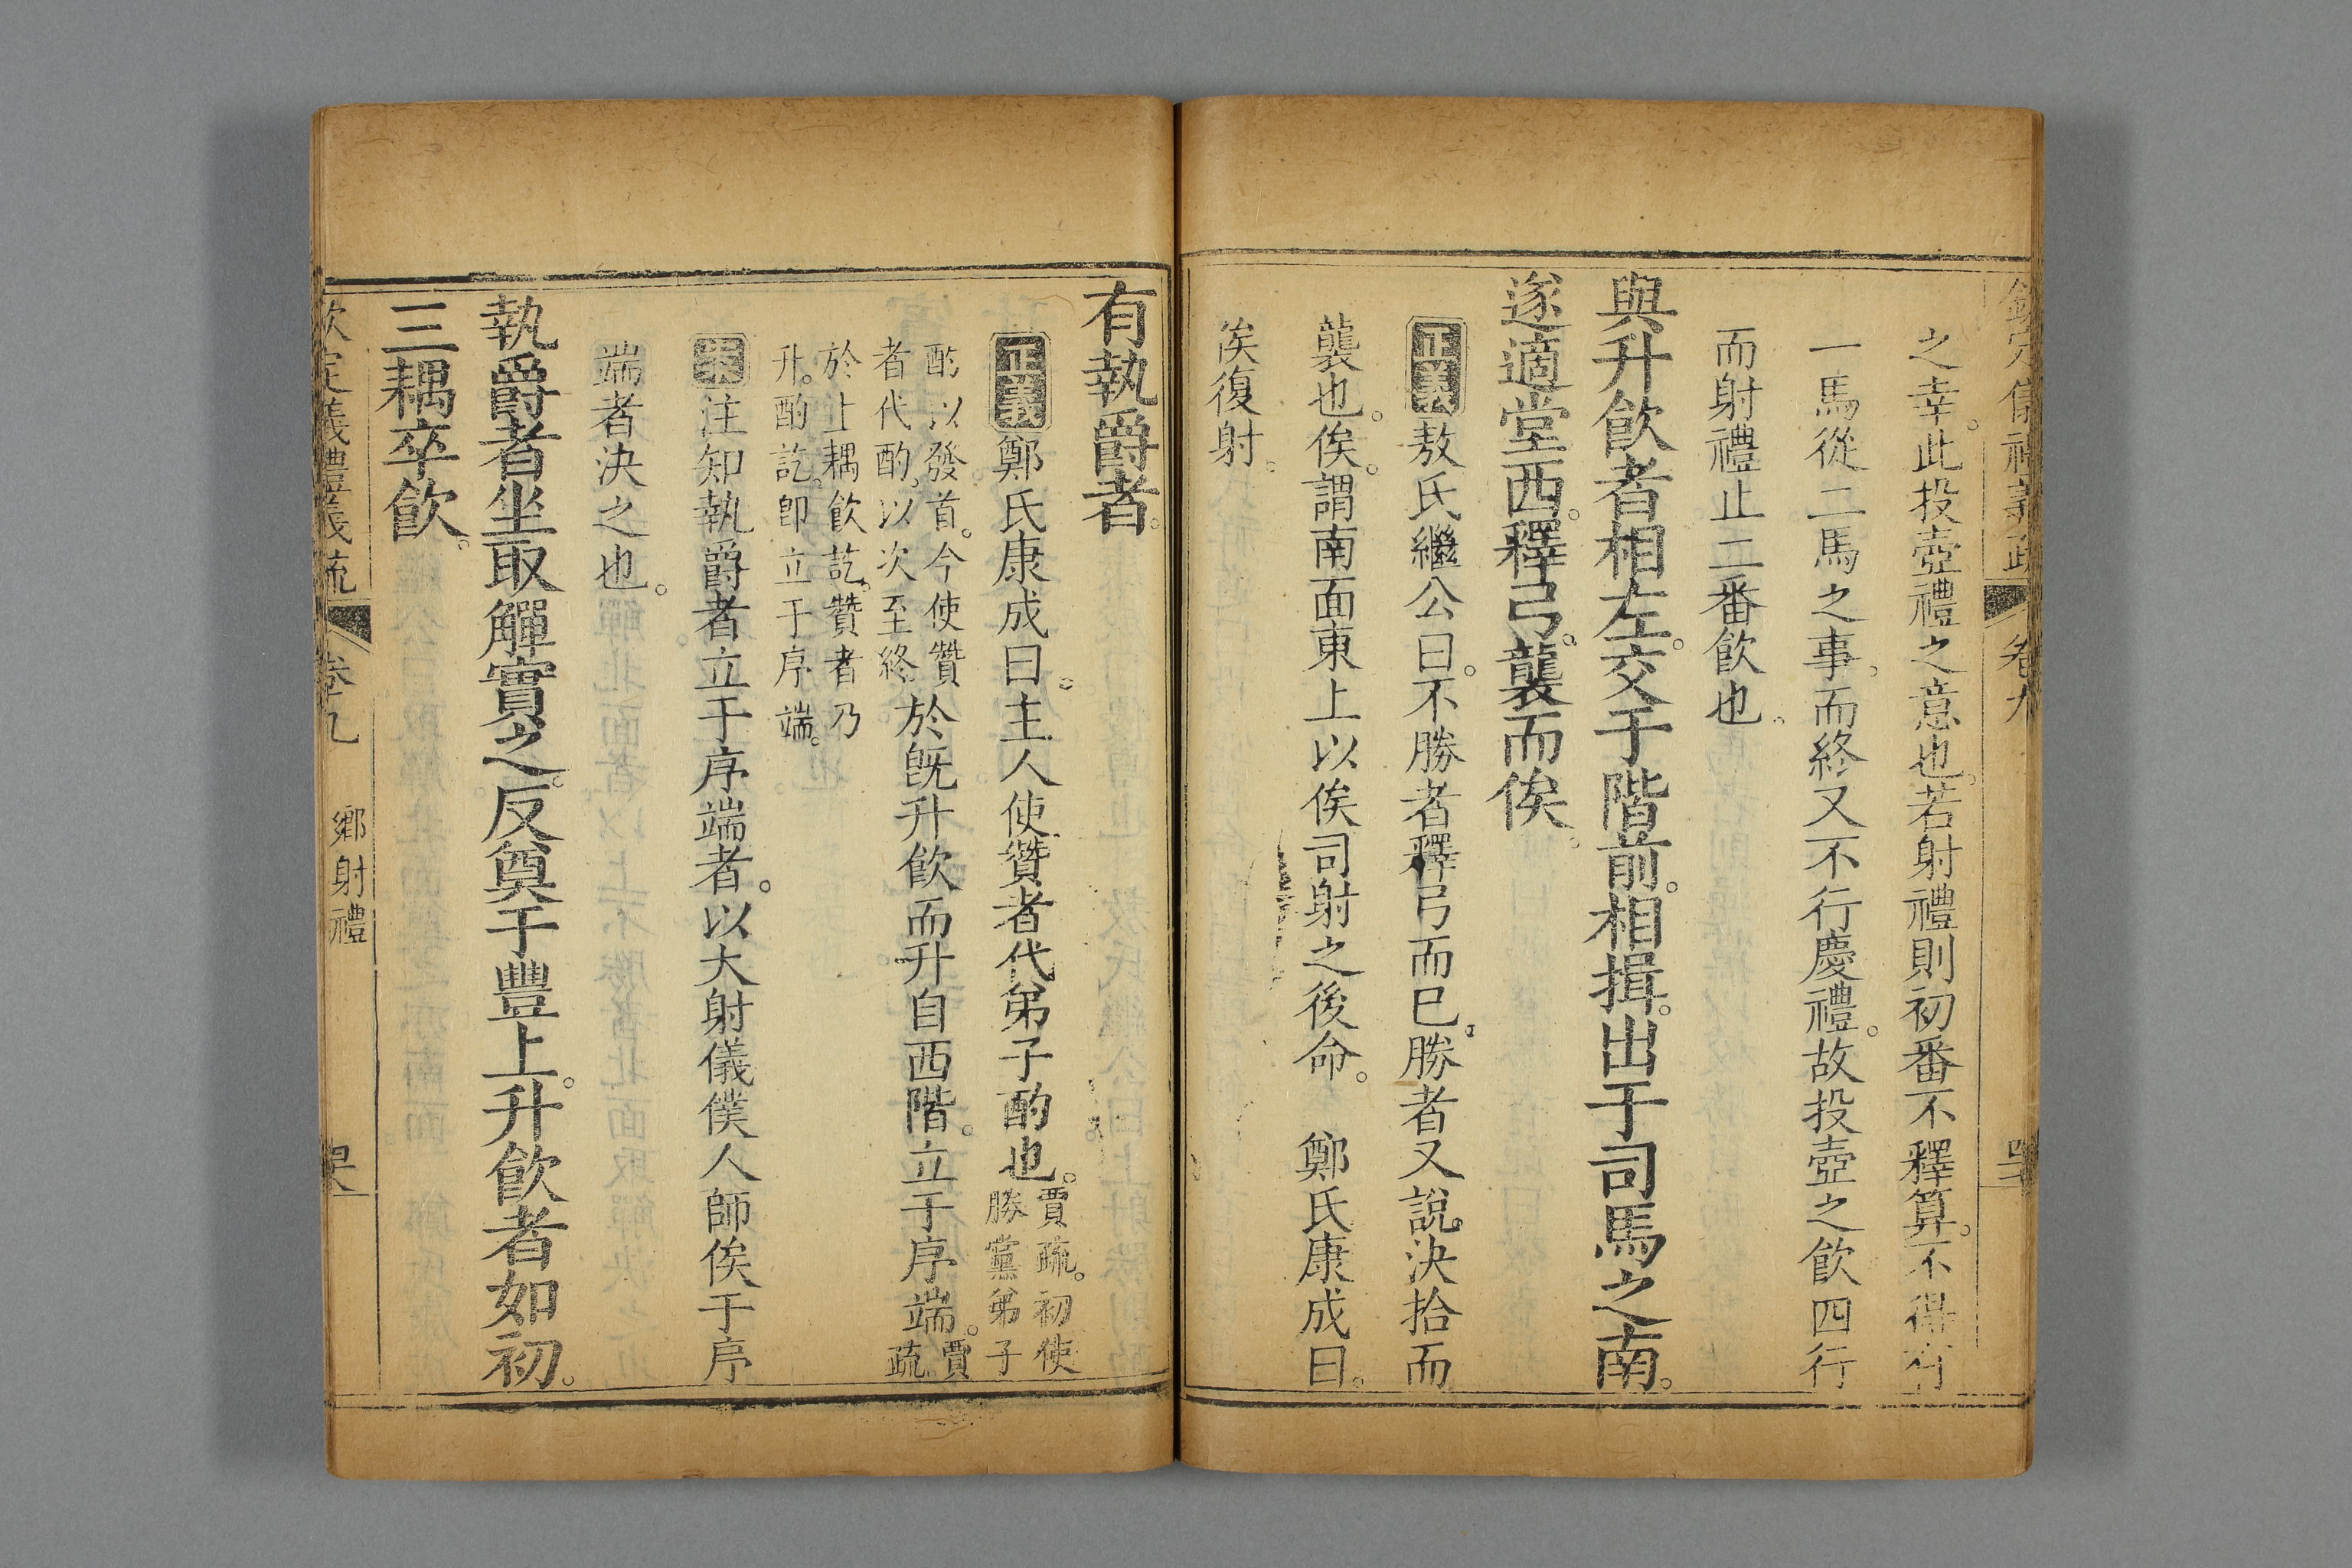 欽定儀禮義疏 卷九
之幸。此投壺禮之意也。若射禮則初番不釋算。不得行
一馬從二馬之事。而終又不行慶禮。故投壺之飲四行
而射禮止二番飲也。
與升飲者相左。交于階前。相揖。出于司馬之南。
遂適堂西。釋弓。襲而俟。
正義敖氏繼公曰。不勝者釋弓而已。勝者又說決拾而
襲也。俟。謂南面東上以俟司射之後命。 鄭氏康成曰。
俟復射。
有執爵者。
正義鄭氏康成曰。主人使贊者代弟子酌也。賈疏。初使
勝黨弟子
酌以發首。今使贊
者代酌。以次至終於既升飲而升自西階。立于序端。賈
疏。
於上耦飲訖。贊者乃
升。酌訖。即立于序端。
案注知執爵者立于序端者。以大射儀僕人師俟于序
端者決之也。
執爵者坐取觶實之。反奠于豐上。升飲者如初。
三耦卒飲。
欽定儀禮義疏 卷九 鄉射禮